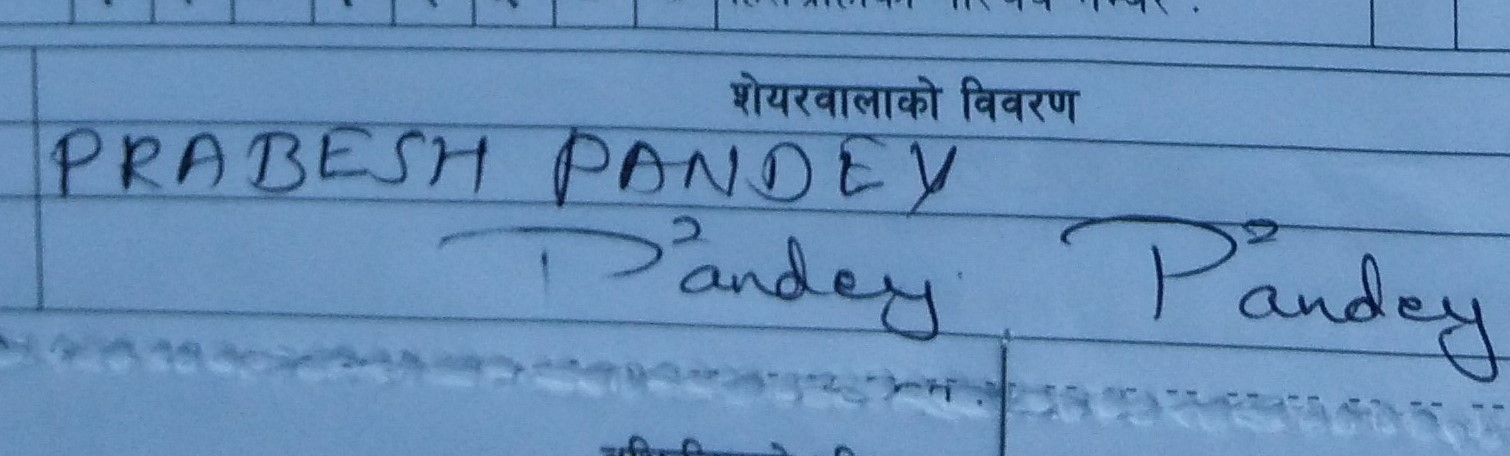 शेयरवालाको विवरण
PRABESH PANDEY
P²andey P²andey